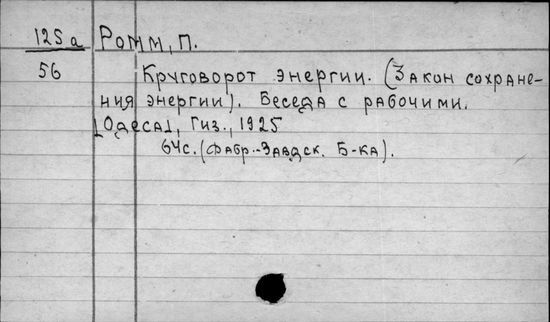 125а Ромм, П.
56 Круговорот энергии. (Закон сохране-
ния энергии). Беседа с рабочими.
[Одесса], Гиз., 1925
64с. (Фабр.-Завдск. Б-ка).